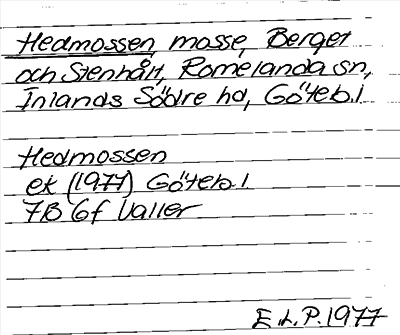 Hedmossen, mosse, Berget
och Stenhållt, Romelanda sn,
Inlands Södre hd, Göteb. l
Hedmossen
ek (1977) Göteb. l
7B 6f Valler
E.L.P. 1977